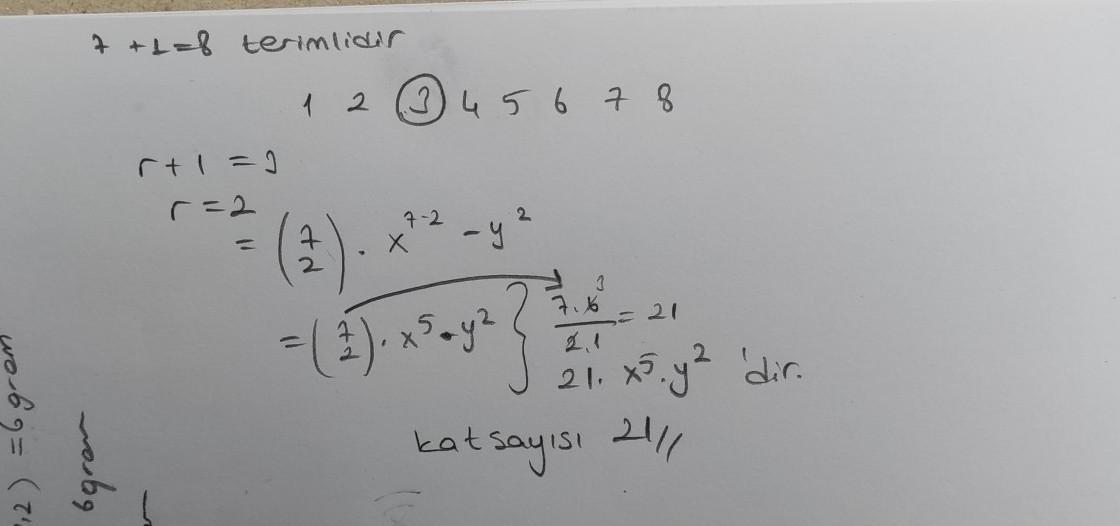 7 + 1 = 8 terimlidir
1 2 3 4 5 6 7 8
r + 1 = 3
r = 2
= (7 2) . x^7-2 - y^2
= (7 2) . x^5 . y^2 } 7.6 3 / 2.1 = 21
21. x^5 . y^2 'dir.
katsayısı 21//
,2) = 6 gram
6 gram